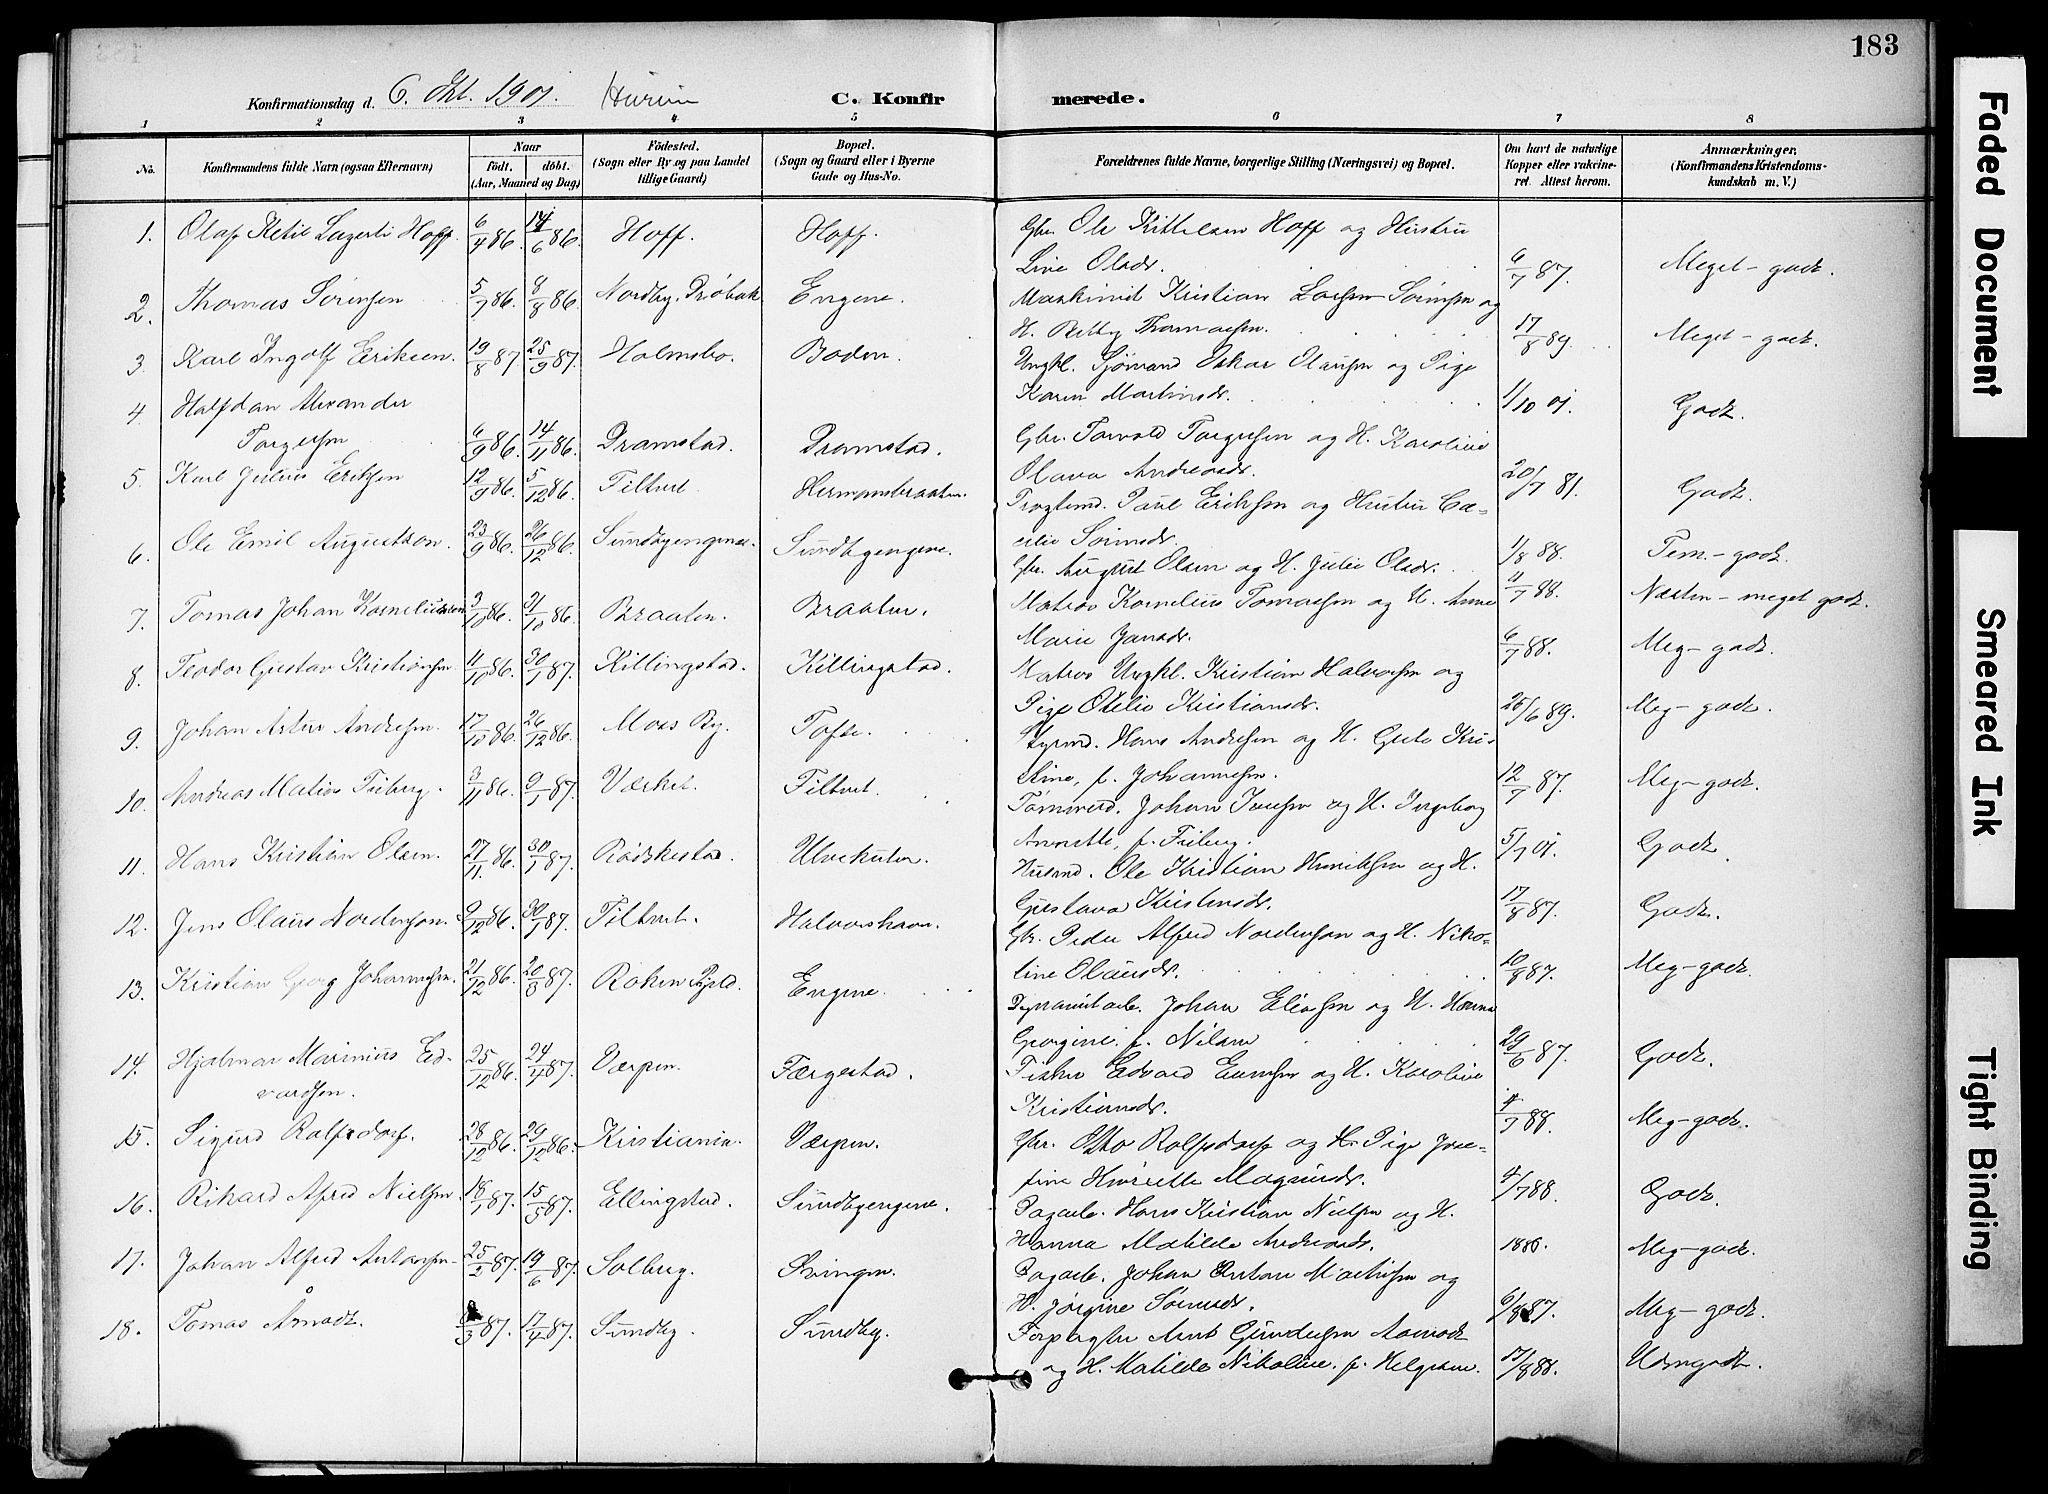 183
Konfirmationsdag d. 6. Okt. 1901. Hurum C. Konfirmerede.
1 2 3 4 5 6 7 8
No. Konfirmandens fulde Navn (ogsaa Efternavn) Naar født. døbt. (Aar, Maaned og Dag) Fødested. (Sogn eller By og paa Landet tillige Gaard) Bopæl. (Sogn og Gaard eller i Byerne Gade og Hus-No. Forældrenes fulde Navne, borgerlige Stilling (Næringsvei) og Bopæl. Om havt de naturlige Kopper eller vakcineret. Attest herom. Anmærkninger. (Konfirmandens Kristendomskundskab m. V.)
1. Olaf Ketil Hoff. 6/4 86. 14/6 86. Hoff. Hoff. Gbr. Ole Kittelsen Hoff og Hustru
Line Olsdr. 6/7 87. Meget-godt.
2. Thomas Sørensen 5/7 86. 8/8 86. Nordby, Drøbak Engene. Maskinist Kristian Sørensen og
H. Thomassen. 17/8 89. Meget-godt.
3. Karl Ingolf Eriksen. 19/8 87. 25/9 87. Holmsbo. Boden. Ungkl. Sjømand Oskar Olaussen og Pige
Karen Martinsdr. 1/10 01. Godt.
4. Halfdan Alexander
Torgersen 6/9 86. 14/11 86. Dramstad. Dramstad. Gbr. Torvald Torgersen og H. Karoline
Olava Andreasdr. 20/7 81. Godt.
5. Karl Julius Eriksen 12/9 86. 5/12 86. Filtvet. Hermansbraaten. Paul Eriksen og Hustru Ca-
cilie Sørensdr. 1/8 88. Tem.-godt.
6. Ole Emil Augustson. 23/9 86. 26/12 86. Sundbyengene. Sundbyengene. Gbr. August Olsen og H. Julie Olsdr. 11/7 88. Næsten-meget godt.
7. Tomas Johan Korneliusson 3/10 86. 31/10 86. Braaten. Braaten. Matros Kornelius Tomassen og H. Anne
Marie Jansdr. 6/7 88. Meg-godt.
8. Teodor Gustav Kristiansen 11/10 86. 30/1 87. Killingstad. Killingstad. Matros Ungkl. Kristian Halvorsen og
Pige Otelie Kristiansdr. 25/6 89. Meg-godt.
9. Johan Artur Andresen. 17/10 86. 26/12 86. Moss By. Tofte. Styrmd. Hans Andresen og H. Kri-
stine, f. Johannesen. 12/7 87. Meg-godt.
10. Andreas Matias Friberg. 3/11 86. 9/1 87. Værket. Filtvet. Tømmerd. Johan Iversen og H. Ingeborg
Annette, f. Friberg. 5/7 01. Godt.
11. Hans Kristian Olsen. 27/11 86. 30/1 87. Rødskestad. Ulvekulen. Husmd. Ole Kristian Henriksen og H.
Gustava Kristensdr. 17/8 87. Godt.
12. Jens Olaus Nordenson. 9/12 86. 30/1 87. Filtvet. Halvorshavn. Gbr. Peder Alfred Nordenson og H. Niko-
line Olausdr. 10/8 87. Meg-godt.
13. Kristian Georg Johannesen. 21/12 86. 20/3 87. Røken Engene. Dynamitarb. Johan Eliassen og H. Hanna
Georgine, f. Nilsen 29/6 87. Godt.
14. Hjalmar Marinius Ed-
vardsen. 25/12 86. 24/4 87. Værpen. Færgestad. Fisker Edvard Evensen og H. Karoline
Kristiansdr. 4/7 88. Meg-godt.
15. Sigurd Rolfsdorf. 28/12 86. 29/12 86. Kristiania. Værpen. Gbr. Otto Rolfsdorf og H. Pige Jose-
fine Henriette Magnusdr. 4/7 88. Godt.
16. Rikard Alfred Nielsen. 18/1 87. 15/5 87. Ellingstad. Sundbyengene. Dagarb. Hans Kristian Nielsen og H.
Hanna Matilde Andreasdr. 1886. Meg-godt.
17. Johan Alfred Antonsen. 25/2 87. 19/6 87. Solberg. Svingen. Dagarb. Johan Anton Martinsen og
H. Jørgine Sørensdr. 6/8 87. Meg-godt.
18. Tomas Åmodt. 3 87. 17/4 87. Sundby. Sundby. Forpagter Arnt Gundersen Aamodt
og H. Matilde Nikoline, f. Helgesen. 17/8 88. Udmgodt.
Faded Document
Smeared Ink
Tight Binding